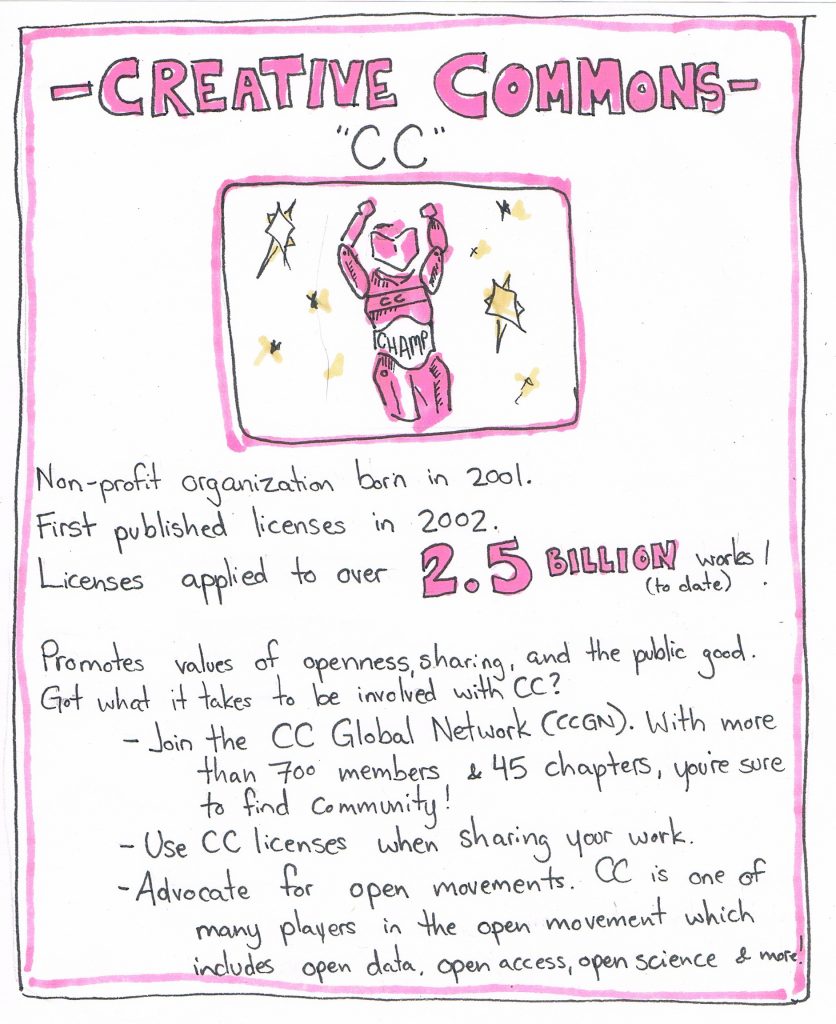 -CREATIVE COMMONS-
"CC"
CC
CHAMP
Non-profit organization born in 2001.
First published licenses in 2002.
Licenses applied to over 2.5 BILLION works!
(to date)
Promotes values of openness, sharing, and the public good.
Got what it takes to be involved with CC?
- Join the CC Global Network (CCGN). With more
than 700 members & 45 chapters, you're sure
to find community!
- Use CC licenses when sharing your work.
- Advocate for open movements. CC is one of
many players in the open movement which
includes open data, open access, open science & more!